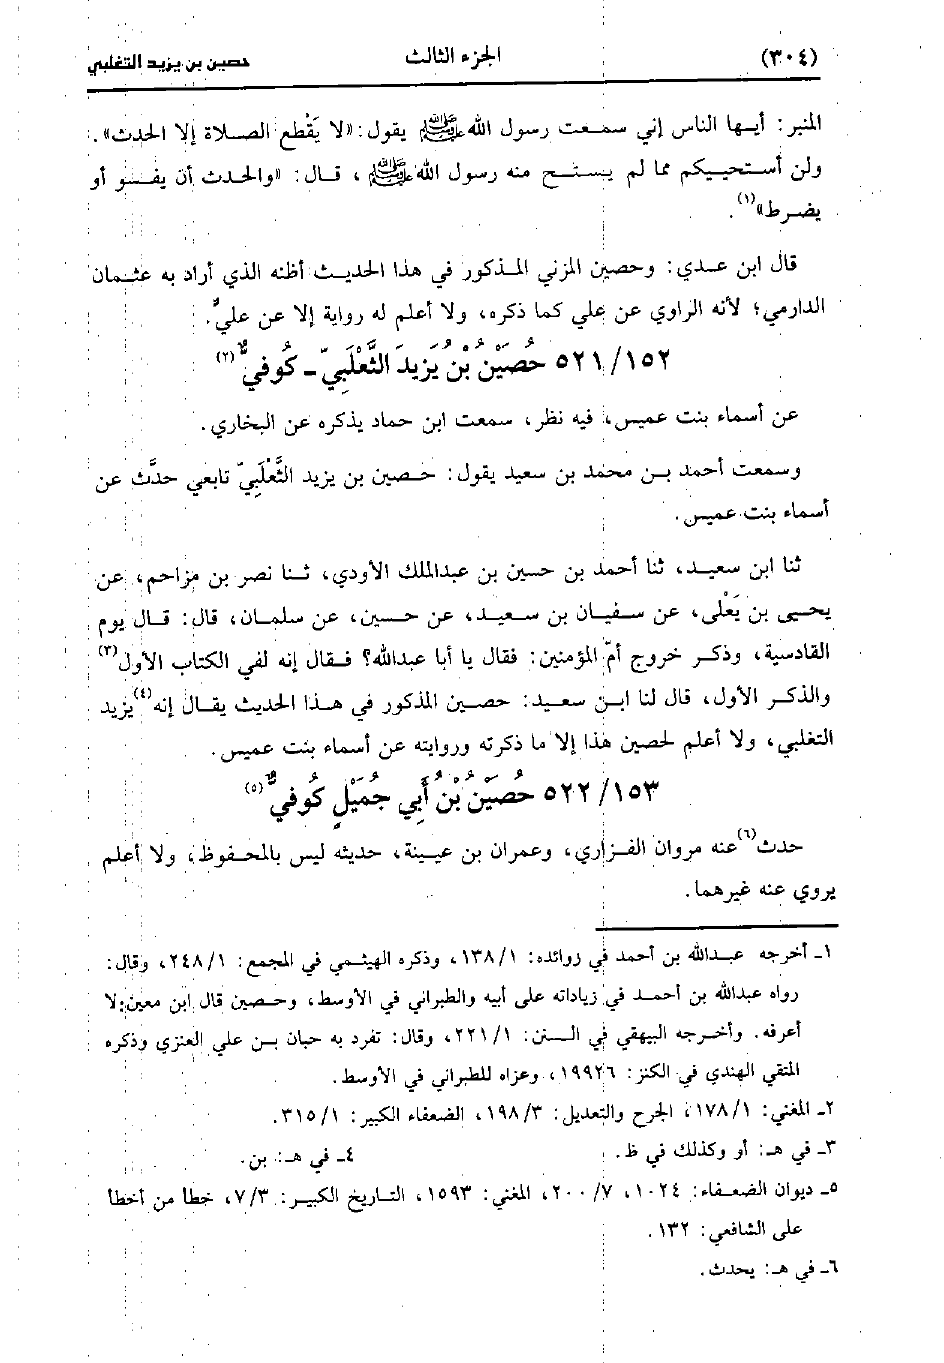 (٣٠٤) الجزء الثالث حصين بن يزيد التغلبي
المنبر: أيها الناس إني سمعت رسول الله ﷺ يقول: «لا يَقْطع الصلاة إلا الحدث».
ولن أستحييكم مما لم يستح منه رسول الله ﷺ، قال: «والحدث أن يفسو أو
يضرط»(١).
قال ابن عدي: وحصين المزني المذكور في هذا الحديث أظنه الذي أراد به عثمان
الدارمي؛ لأنه الراوي عن علي كما ذكره، ولا أعلم له رواية إلا عن عليٍّ.
٥٢١/١٥٢ حُصَيْنُ بْنُ يَزِيدَ الثَّعْلَبِيّ - كُوفيٌّ(٢)
عن أسماء بنت عميس، فيه نظر، سمعت ابن حماد يذكره عن البخاري.
وسمعت أحمد بن محمد بن سعيد يقول: حصين بن يزيد الثَّعْلَبِيّ تابعي حدَّث عن
أسماء بنت عميس.
ثنا ابن سعيد، ثنا أحمد بن حسين بن عبدالملك الأودي، ثنا نصر بن مزاحم، عن
يحيى بن يَعْلى، عن سفيان بن سعيد، عن حسين، عن سلمان، قال: قال يوم
القادسية، وذكر خروج أمّ المؤمنين: فقال يا أبا عبدالله؟ فقال إنه لفي الكتاب الأول(٣)
والذكر الأول، قال لنا ابن سعيد: حصين المذكور في هذا الحديث يقال إنه(٤) يزيد
التغلبي، ولا أعلم لحصين هذا إلا ما ذكرته وروايته عن أسماء بنت عميس.
٥٢٢/١٥٣ حُصَيْنُ بْنُ أَبِي جُمَيْلٍ كُوفيٌّ(٥)
حدث(٦) عنه مروان الفزاري، وعمران بن عيينة، حديثه ليس بالمحفوظ، ولا أعلم
يروي عنه غيرهما.
١ـ أخرجه عبدالله بن أحمد في زوائده: ١٣٨/١، وذكره الهيثمي في المجمع: ٢٤٨/١، وقال:
رواه عبدالله بن أحمد في زياداته على أبيه والطبراني في الأوسط، وحصين قال ابن معين: لا
أعرفه. وأخرجه البيهقي في السنن: ٢٢١/١، وقال: تفرد به حبان بن علي العنزي وذكره
المتقي الهندي في الكنز: ١٩٩٢٦، وعزاه للطبراني في الأوسط.
٢ـ المغني: ١٧٨/١، الجرح والتعديل: ١٩٨/٣، الضعفاء الكبير: ٣١٥/١.
٣ـ في هـ: أو وكذلك في ظ. ٤ـ في هـ: بن.
٥ـ ديوان الضعفاء: ١٠٢٤، ٢٠٠/٧، المغني: ١٥٩٣، التاريخ الكبير: ٧/٣، خطأ من أخطأ
على الشافعي: ١٣٢.
٦ـ في هـ: يحدث.